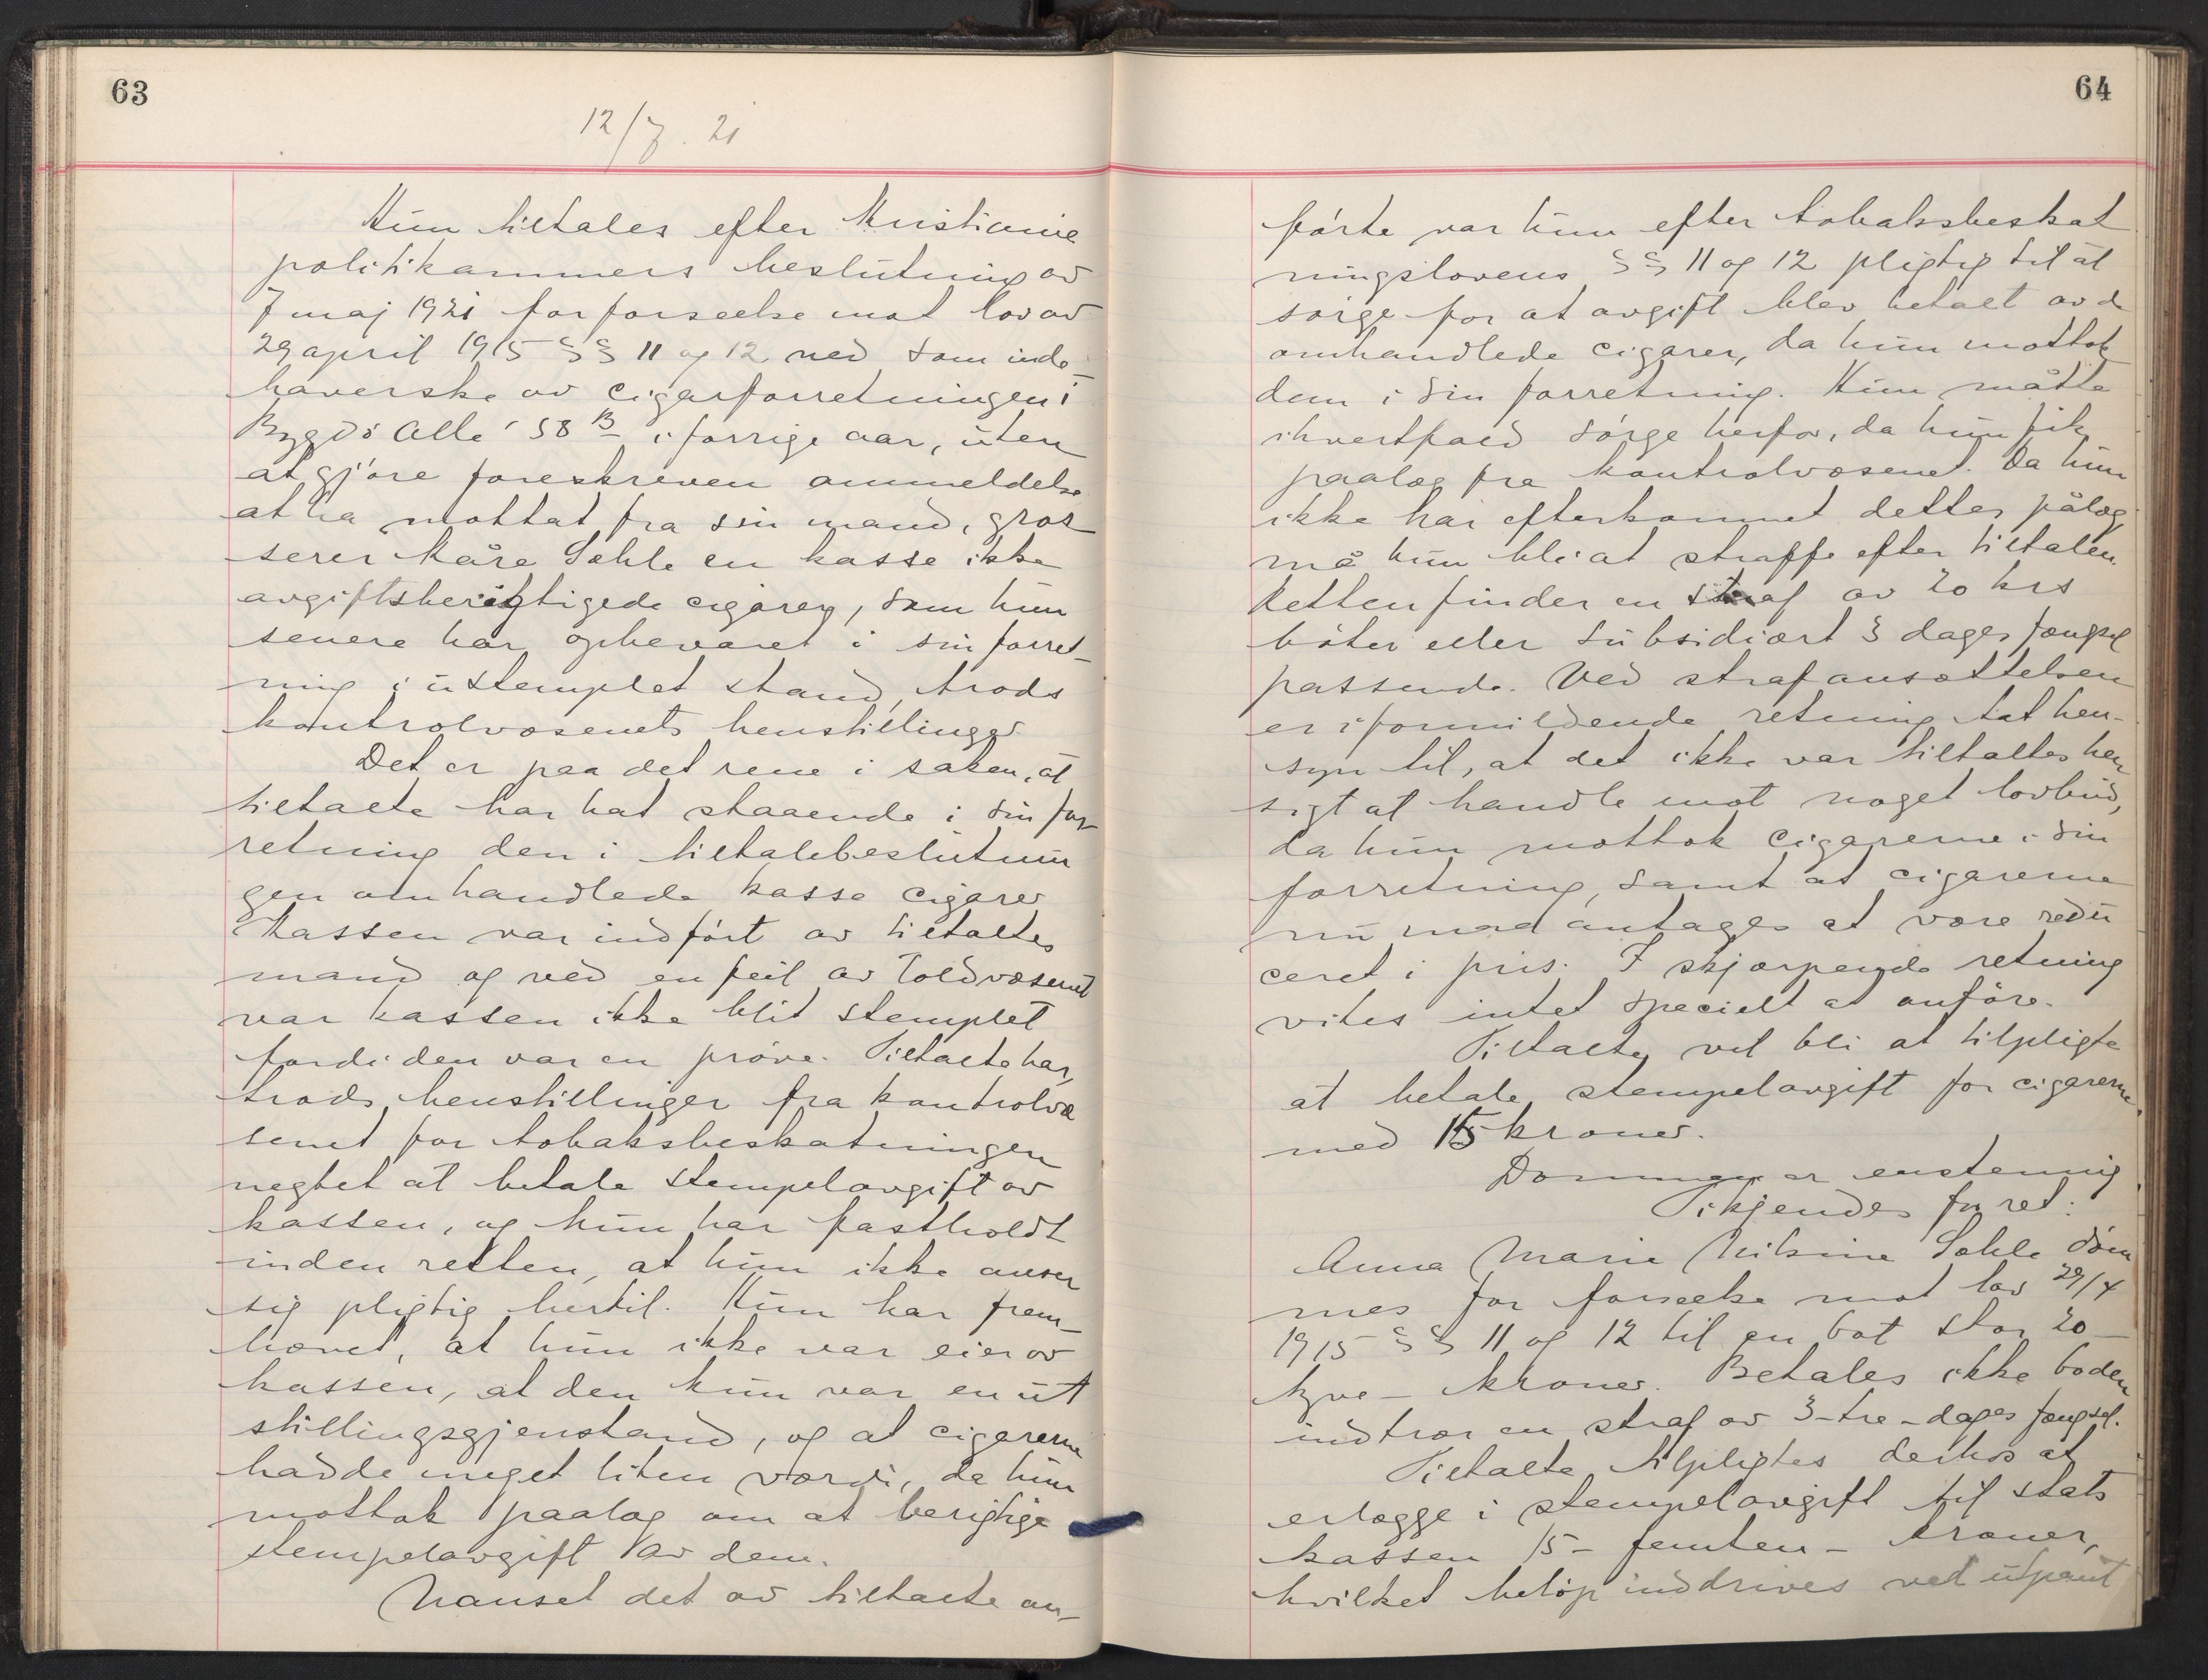 63
12/7. 21
Hun tiltales efter Kristiania
politikammers beslutning av
7 maj 1921 for forseelse mot lov av
29 april 1915 §§ 11 og 12 ved som inde-
haverske av cigarforretningen i
Bygdø Alle 58 B i forrige aar, uten
at gjøre foreskreven anmeldelse
at ha mottat fra sin mand, gros
serer Kåre Sohle en kasse ikke
avgiftsberigtigede cigarer, som hun
senere har opbevaret i sin forret-
ning i ustemplet stand, trods
kontrolvæsenets henstillinger
Det er paa det rene i saken, at
tiltalte har hat staaende i sin for-
retning den i tiltalebeslutnin
gen omhandlede kasse cigarer
Kassen var indført av tiltaltes
mand og ved en feil av toldvæsenet
var kassen ikke blit stemplet
fordi den var en prøve. Tiltalte har,
trods henstillinger fra kontrolvæ
senet for tobaksbeskatningen
negtet at betale stempelavgift av
kassen, og hun har fastholdt
inden retten, at hun ikke anser
sig pligtig hertil. Hun har frem-
hævet, at hun ikke var eier av
kassen, at den kun var en ut
stillingsgjenstand, og at cigarerne
hadde meget liten værdi, da hun
mottok paalæg om at berigtige
stempelavgift av dem.
Uanset det av tiltalte an-
64
førte var hun efter tobaksbeskat
ningslovens §§ 11 og 12 pligtig til at
sørge for at avgift blev betalt av de
omhandlede cigarer, da hun mottok
dem i sin forretning. Hun måtte
ihvertfald sørge herfor, da hun fik
paalæg fra kontrolvæsenet. Da hun
ikke har efterkommet dettes pålæg,
må hun bli at straffe efter tiltalen.
Retten finder en straf av 20 krs
bøter eller subsidiært 3 dages fængsel
passende. Ved strafansættelsen
er i formildende retning tat hen-
syn til, at det ikke var tiltaltes hen
sigt at handle mot noget lovbud,
da hun mottok cigarerne i sin
forretning, samt at cigarerne
nu maa antages at være redu
ceret i pris. I skjærpende retning
vites intet specielt at anføre.
Tiltalte vil bli at tilpligte
at betale stempelavgift for cigarerne
med 15 kroner.
Dommen er enstemmig
Ti kjendes for ret:
Anna Marie Nilsine Sohle døm
mes for forseelse mot lov 29/4
1915 §§ 11 og 12 til en bot stor 20-
tyve- kroner. Betales ikke boden
indtrær en straf av 3-tre-dages fængsel.
Tiltalte tilpligtes derhos at
erlægge i stempelavgift til stats
kassen 15- femten- kroner,
hvilket beløp inddrives ved utpant